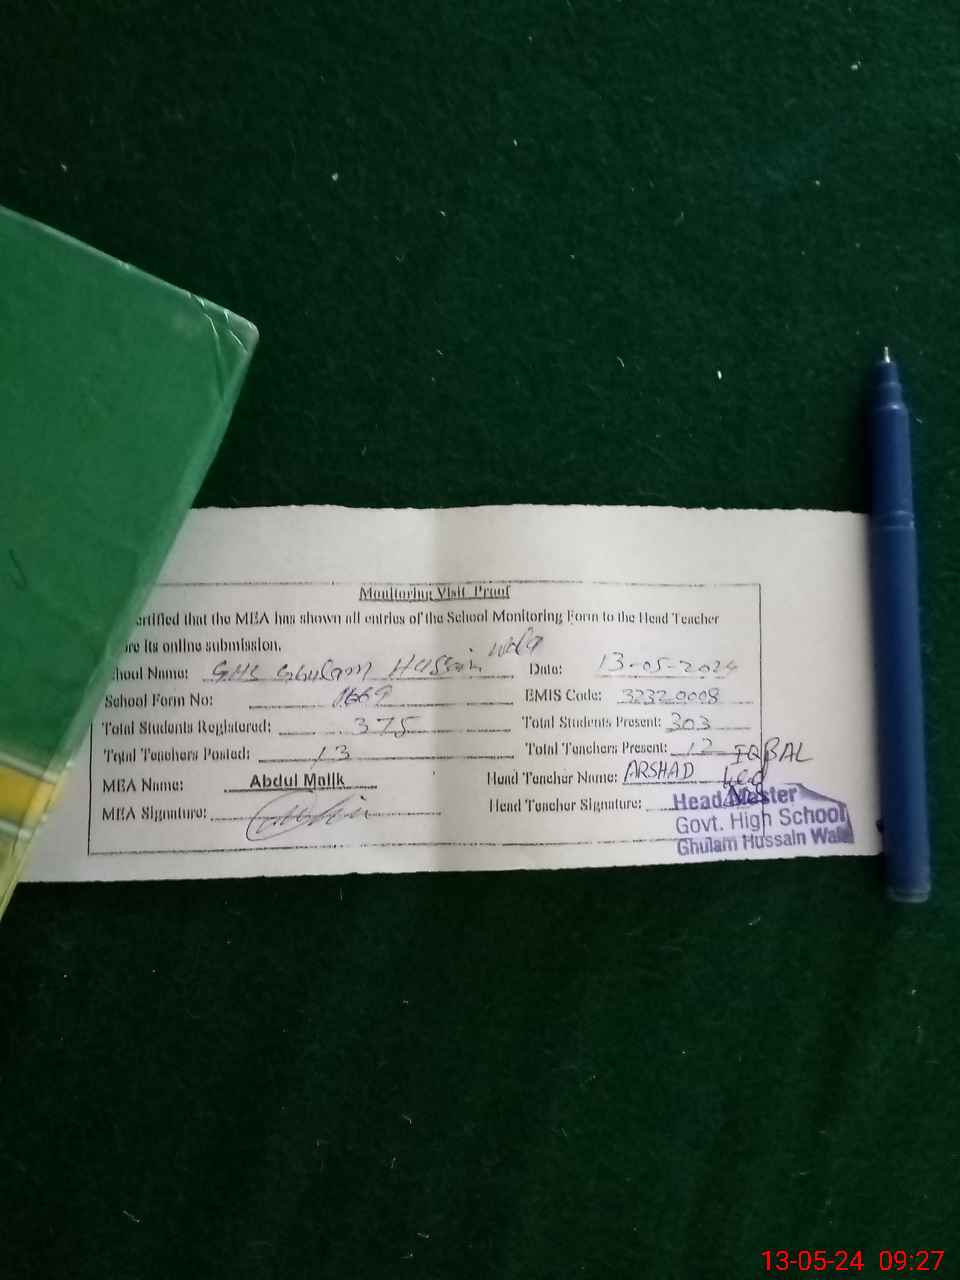 Monitoring Visit Proof
ertified that the MEA has shown all entries of the School Monitoring Form to the Head Teacher
re its online submission.
hool Name: GHS Ghulam Hussain Wala Date: 13-05-2024
School Form No: 1669 EMIS Code: 32320008
Total Students Registered: 375 Total Students Present: 303
Total Teachers Posted: 13 Total Teachers Present: 12
MEA Name: Abdul Malik Head Teacher Name: ARSHAD IQBAL
MEA Signature: Head Teacher Signature:
Head Mester
Govt. High School
Ghulam Hussain Wala
13-05-24 09:27